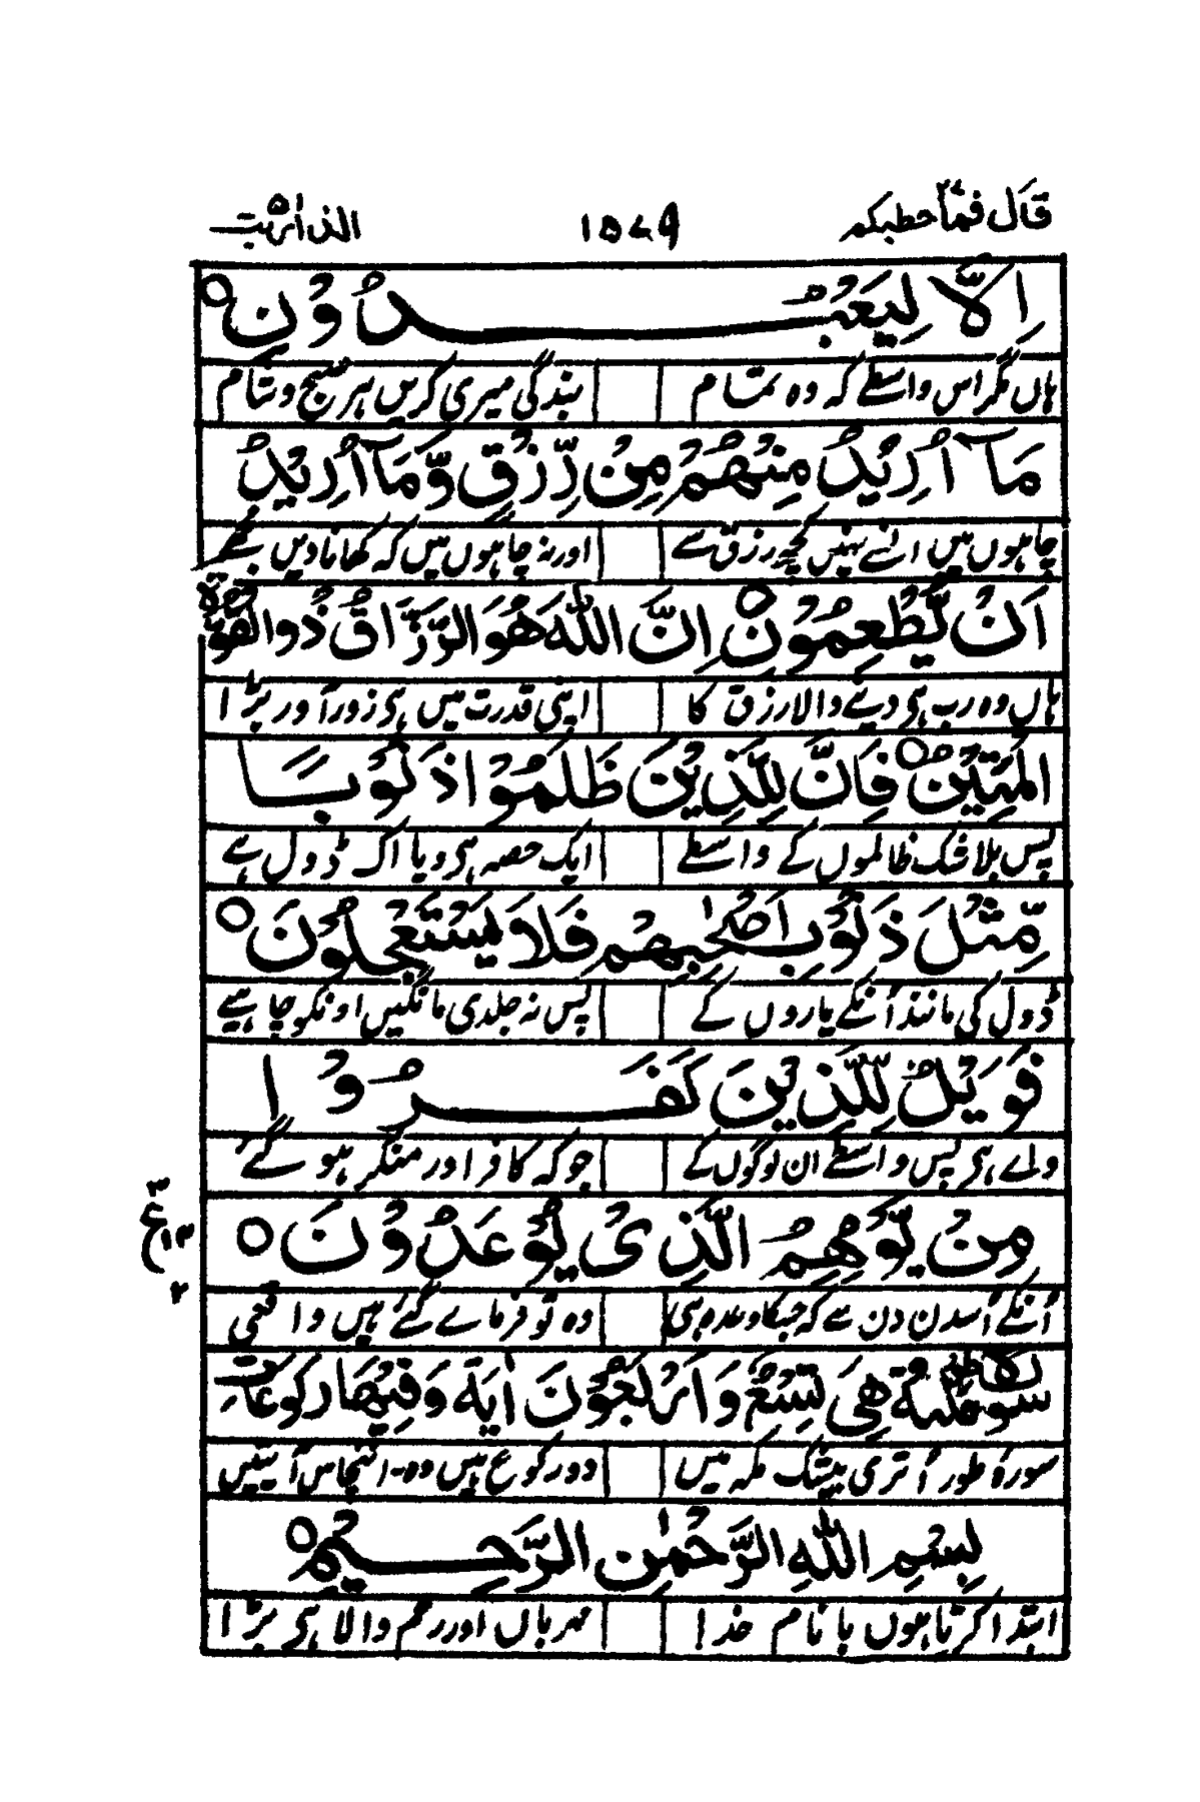 قال فما خطبکم ٢٧ ١٥٧٩ الذاریٰت ٥١
اِلَّا لِیَعْبُدُوْنِ ○
ہاں مگر اس واسطے کہ وہ تمام بندگی میری کریں ہر صبح و شام
مَآ اُرِیْدُ مِنْهُمْ مِنْ رِّزْقٍ وَّمَآ اُرِیْدُ
چاہوں میں انسے نہیں کچھ رزق سے اور نہ چاہوں میں کہ کھانا دیں مجھے
اَنْ یُّطْعِمُوْنِ ○ اِنَّ اللّٰهَ هُوَ الرَّزَّاقُ ذُو الْقُوَّةِ
ہاں وہ رب ہی دینے والا رزق کا اپنی قدرت میں ہی زورآور بڑا
الْمَتِیْنُ ○ فَاِنَّ لِلَّذِیْنَ ظَلَمُوْا ذَنُوْبًا
پس بلاشک ظالموں کے واسطے ایک حصہ ہی دیا اک ڈول ہے
مِّثْلَ ذَنُوْبِ اَصْحٰبِهِمْ فَلَا یَسْتَعْجِلُوْنَ ○
ڈول کی مانند اُنکے یاروں کے پس نہ جلدی مانگیں اونکو چاہیے
فَوَیْلٌ لِّلَّذِیْنَ كَفَرُوْا
واے ہی پس واسطے ان لوگوں کے جو کہ کافر اور منکر ہو گئے
مِنْ یَّوْمِهِمُ الَّذِیْ یُوْعَدُوْنَ ○
ع ٣ ١٣ ٢
اُنکے اُسدن دن سے کہ جسکا وعدہ ہی وہ تو فرمائے گئے ہیں واقعی
سورة الطور مکیة هِیَ تِسْعٌ وَاَرْبَعُوْنَ اٰیَة وَفِیْهَا رکوعات
سورۂ طور اُتری بیشک مکہ میں دو رکوع ہیں وہ۔ انچاس آیتیں
بِسْمِ اللّٰهِ الرَّحْمٰنِ الرَّحِیْمِ ○
ابتدا کرتا ہوں با نام خدا مہربان اور رحم والا ہی بڑا